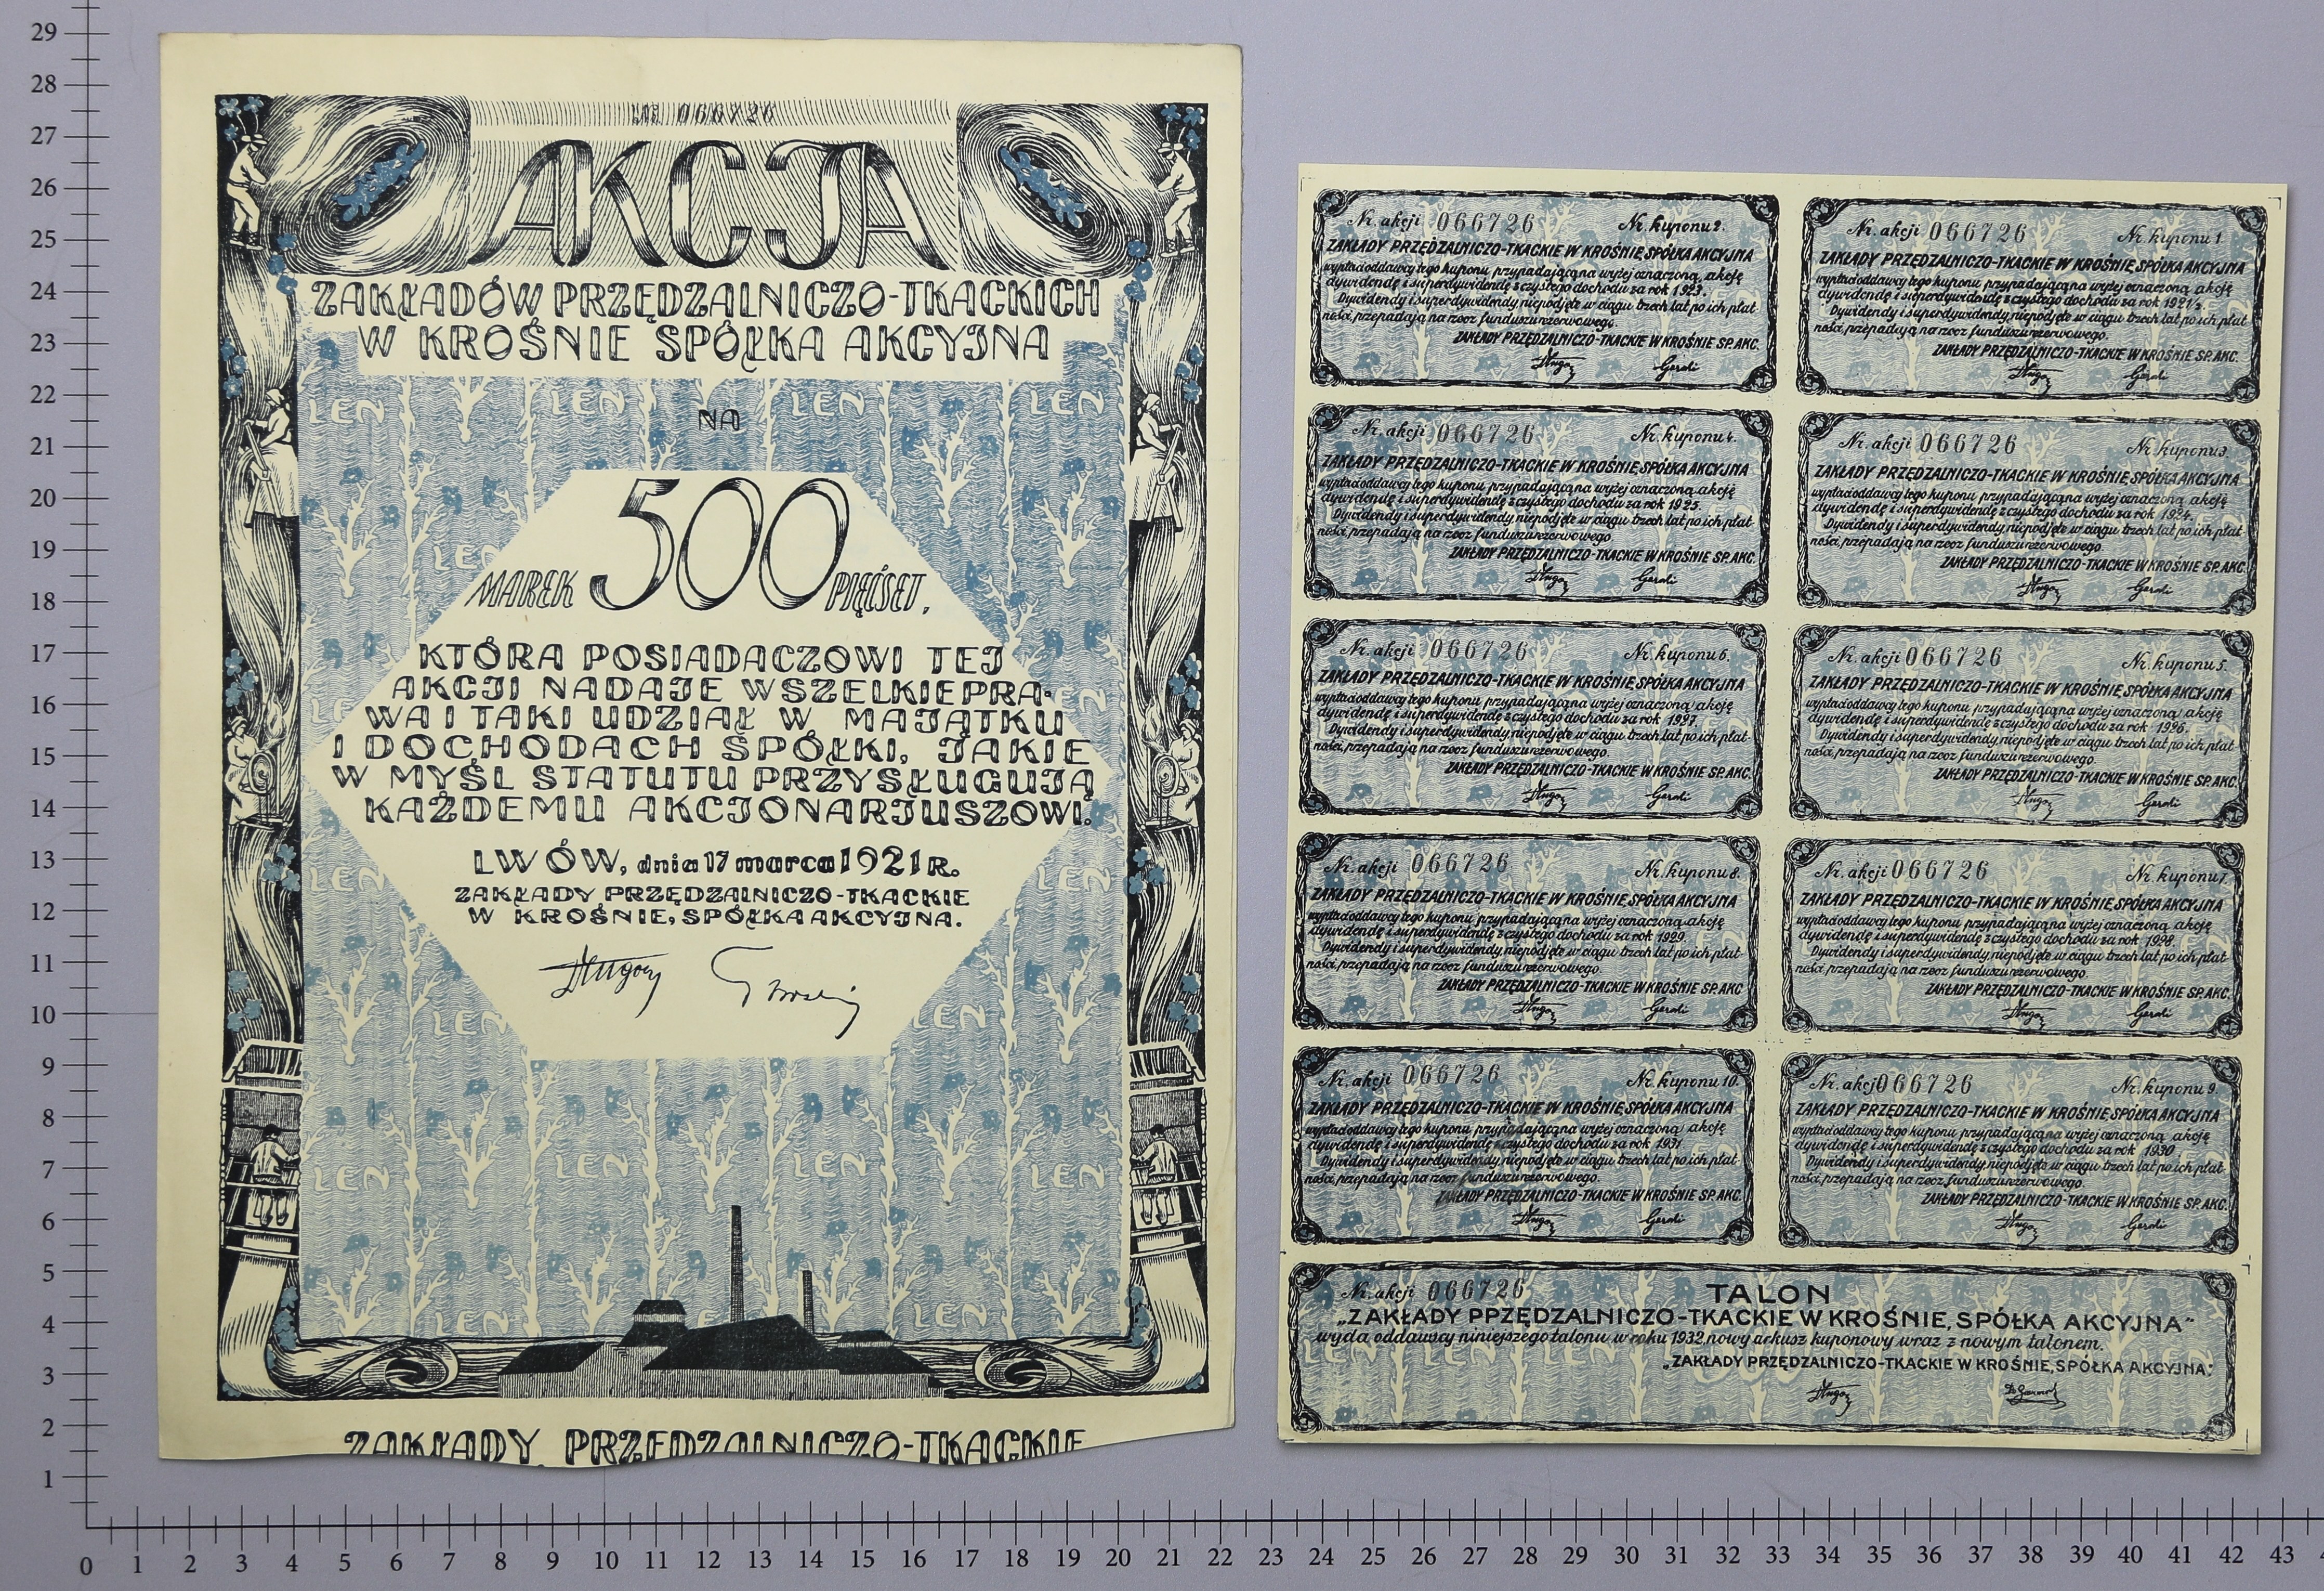 № 066726
AKCJA
ZAKŁADÓW PRZĘDZALNICZO-TKACKICH
W KROŚNIE SPÓŁKA AKCYJNA
LEN LEN LEN LEN
NA
MAREK 500 PIĘĆSET,
KTÓRA POSIADACZOWI TEJ
AKCJI NADAJE WSZELKIE PRA-
WA I TAKI UDZIAŁ W MAJĄTKU
I DOCHODACH SPÓŁKI, JAKIE
W MYŚL STATUTU PRZYSŁUGUJĄ
KAŻDEMU AKCJONARJUSZOWI.
LWÓW, dnia 17 marca 1921 R.
ZAKŁADY PRZĘDZALNICZO-TKACKIE
W KROŚNIE, SPÓŁKA AKCYJNA.
LEN LEN LEN LEN
ZAKŁADY PRZĘDZALNICZO-TKACKIE
Nr. akcji 066726 Nr. kuponu 2.
ZAKŁADY PRZĘDZALNICZO-TKACKIE W KROŚNIE, SPÓŁKA AKCYJNA
wypłaci oddawcy tego kuponu przypadającą na wyżej oznaczoną akcję
dywidendę i superdywidendę z czystego dochodu za rok 1923.
Dywidendy i superdywidendy, niepodjęte w ciągu trzech lat po ich płat-
ności, przepadają na rzecz funduszu rezerwowego.
ZAKŁADY PRZĘDZALNICZO-TKACKIE W KROŚNIE SP. AKC.
Nr. akcji 066726 Nr. kuponu 1
ZAKŁADY PRZĘDZALNICZO-TKACKIE W KROŚNIE, SPÓŁKA AKCYJNA
wypłaci oddawcy tego kuponu przypadającą na wyżej oznaczoną akcję
dywidendę i superdywidendę z czystego dochodu za rok 1921/2.
Dywidendy i superdywidendy, niepodjęte w ciągu trzech lat po ich płat-
ności, przepadają na rzecz funduszu rezerwowego.
ZAKŁADY PRZĘDZALNICZO-TKACKIE W KROŚNIE SP. AKC.
Nr. akcji 066726 Nr. kuponu 4.
ZAKŁADY PRZĘDZALNICZO-TKACKIE W KROŚNIE, SPÓŁKA AKCYJNA
wypłaci oddawcy tego kuponu przypadającą na wyżej oznaczoną akcję
dywidendę i superdywidendę z czystego dochodu za rok 1925.
Dywidendy i superdywidendy, niepodjęte w ciągu trzech lat po ich płat-
ności, przepadają na rzecz funduszu rezerwowego.
ZAKŁADY PRZĘDZALNICZO-TKACKIE W KROŚNIE SP. AKC.
Nr. akcji 066726 Nr. kuponu 3.
ZAKŁADY PRZĘDZALNICZO-TKACKIE W KROŚNIE, SPÓŁKA AKCYJNA
wypłaci oddawcy tego kuponu przypadającą na wyżej oznaczoną akcję
dywidendę i superdywidendę z czystego dochodu za rok 1924.
Dywidendy i superdywidendy, niepodjęte w ciągu trzech lat po ich płat-
ności, przepadają na rzecz funduszu rezerwowego.
ZAKŁADY PRZĘDZALNICZO-TKACKIE W KROŚNIE SP. AKC.
Nr. akcji 066726 Nr. kuponu 6.
ZAKŁADY PRZĘDZALNICZO-TKACKIE W KROŚNIE, SPÓŁKA AKCYJNA
wypłaci oddawcy tego kuponu przypadającą na wyżej oznaczoną akcję
dywidendę i superdywidendę z czystego dochodu za rok 1927.
Dywidendy i superdywidendy, niepodjęte w ciągu trzech lat po ich płat-
ności, przepadają na rzecz funduszu rezerwowego.
ZAKŁADY PRZĘDZALNICZO-TKACKIE W KROŚNIE SP. AKC.
Nr. akcji 066726 Nr. kuponu 5.
ZAKŁADY PRZĘDZALNICZO-TKACKIE W KROŚNIE, SPÓŁKA AKCYJNA
wypłaci oddawcy tego kuponu przypadającą na wyżej oznaczoną akcję
dywidendę i superdywidendę z czystego dochodu za rok 1926.
Dywidendy i superdywidendy, niepodjęte w ciągu trzech lat po ich płat-
ności, przepadają na rzecz funduszu rezerwowego.
ZAKŁADY PRZĘDZALNICZO-TKACKIE W KROŚNIE SP. AKC.
Nr. akcji 066726 Nr. kuponu 8.
ZAKŁADY PRZĘDZALNICZO-TKACKIE W KROŚNIE, SPÓŁKA AKCYJNA
wypłaci oddawcy tego kuponu przypadającą na wyżej oznaczoną akcję
dywidendę i superdywidendę z czystego dochodu za rok 1929.
Dywidendy i superdywidendy, niepodjęte w ciągu trzech lat po ich płat-
ności, przepadają na rzecz funduszu rezerwowego.
ZAKŁADY PRZĘDZALNICZO-TKACKIE W KROŚNIE SP. AKC
Nr. akcji 066726 Nr. kuponu 7.
ZAKŁADY PRZĘDZALNICZO-TKACKIE W KROŚNIE, SPÓŁKA AKCYJNA
wypłaci oddawcy tego kuponu przypadającą na wyżej oznaczoną akcję
dywidendę i superdywidendę z czystego dochodu za rok 1928.
Dywidendy i superdywidendy, niepodjęte w ciągu trzech lat po ich płat-
ności, przepadają na rzecz funduszu rezerwowego.
ZAKŁADY PRZĘDZALNICZO-TKACKIE W KROŚNIE SP. AKC.
Nr. akcji 066726 Nr. kuponu 10.
ZAKŁADY PRZĘDZALNICZO-TKACKIE W KROŚNIE, SPÓŁKA AKCYJNA
wypłaci oddawcy tego kuponu przypadającą na wyżej oznaczoną akcję
dywidendę i superdywidendę z czystego dochodu za rok 1931
Dywidendy i superdywidendy, niepodjęte w ciągu trzech lat po ich płat-
ności, przepadają na rzecz funduszu rezerwowego.
ZAKŁADY PRZĘDZALNICZO-TKACKIE W KROŚNIE SP. AKC.
Nr. akcj066726 Nr. kuponu 9.
ZAKŁADY PRZĘDZALNICZO-TKACKIE W KROŚNIE, SPÓŁKA AKCYJNA
wypłaci oddawcy tego kuponu przypadającą na wyżej oznaczoną akcję
dywidendę i superdywidendę z czystego dochodu za rok 1930
Dywidendy i superdywidendy, niepodjęte w ciągu trzech lat po ich płat-
ności, przepadają na rzecz funduszu rezerwowego.
ZAKŁADY PRZĘDZALNICZO-TKACKIE W KROŚNIE SP. AKC.
Nr. akcji 066726 TALON
„ZAKŁADY PPZĘDZALNICZO-TKACKIE W KROŚNIE, SPÓŁKA AKCYJNA"
wyda oddawcy niniejszego talonu w roku 1932, nowy arkusz kuponowy wraz z nowym talonem.
„ZAKŁADY PRZĘDZALNICZO-TKACKIE W KROŚNIE, SPÓŁKA AKCYJNA."
29
28
27
26
25
24
23
22
21
20
19
18
17
16
15
14
13
12
11
10
9
8
7
6
5
4
3
2
1
0 1 2 3 4 5 6 7 8 9 10 11 12 13 14 15 16 17 18 19 20 21 22 23 24 25 26 27 28 29 30 31 32 33 34 35 36 37 38 39 40 41 42 43